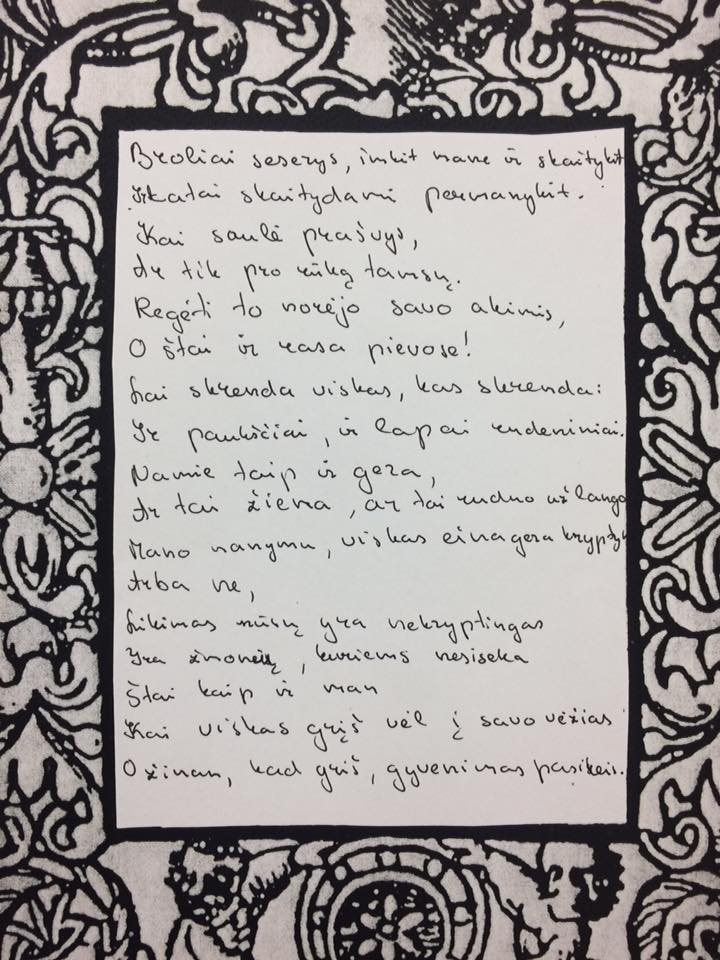 Broliai seserys, imkit mane ir skaitykit
Ir tatai skaitydami permanykit.
Kai saulė prašvys,
Ar tik pro rūką tamsų.
Regėti to norėjo savo akimis,
O štai ir rasa pievose!
Lai skrenda viskas, kas skrenda:
Ir paukščiai, ir lapai rudeniniai.
Namie taip ir gera,
Ar tai žiema, ar tai ruduo už lango
Mano manymu, viskas eina gera krypty
Arba ne,
Likimas mūsų yra nekryptingas
Yra žmonių, kuriems nesiseka
Štai kaip ir man
Kai viskas grįš vėl į savo vėžias
O žinau, kad grįš, gyvenimas pasikeis.